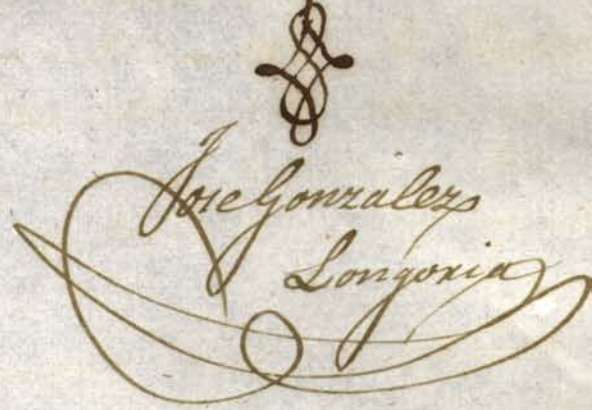 Jose Gonzalez
Longoria